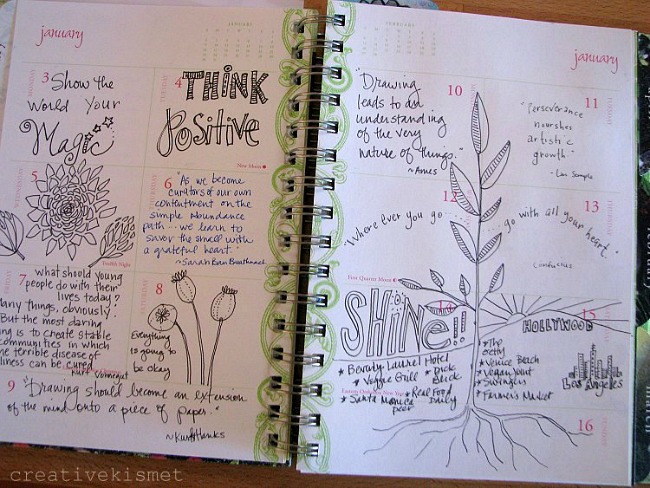 january
JANUARY
3 Show the
World Your
Magic
4 THINK
Positive
New Moon
5
Twelfth Night
6 "As we become
curators of our own
contentment on the
simple abundance
path... we learn to
savor the small with
a grateful heart."
~Sarah Ban Breathnach
7 What should young
people do with their
lives today?
many things, obviously.
But the most daring
is to create stable
communities in which
the terrible disease of
can be cured.
Vonnegut
8
Everything
is going to
be okay
9 "Drawing should become an extension
of the mind onto a piece of paper."
~Kurt Hanks
FEBRUARY
january
"Drawing
leads to an
understanding
of the very
nature of things."
~Ames
10
11
"Perseverance
nourishes
artistic
growth"
12
13
"Where ever you go... go with all your heart.
confucius
First Quarter Moon
SHINE!!
14
15
HOLLYWOOD
Los Angeles
* Beverly Laurel Hotel
* Veggie Grill
* Santa Monica
pier
* Real Food
Daily
* The
Getty
* Venice Beach
* Swingers
* Farmer's Market
16
creativekismet